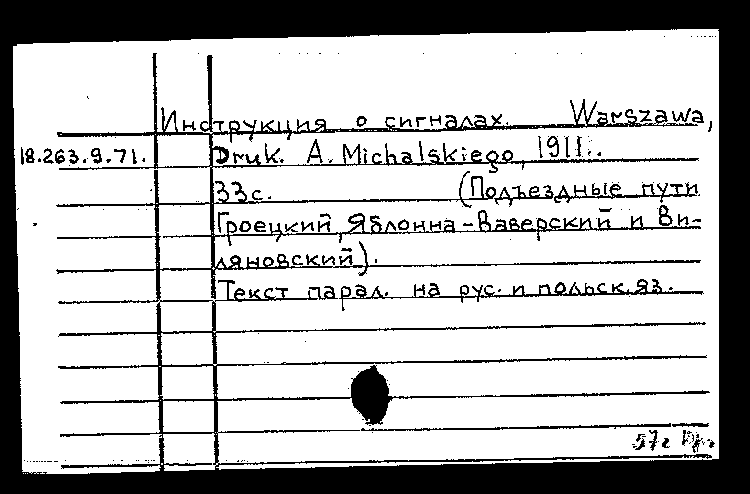 Инструкция о сигналах. Warszawa,
18.263.9.71. Druk. A. Michalskiego, 1911.
33с. (Подъездные пути
Гроецкий, Яблонна-Ваверский и Ви-
ляновский).
Текст парал. на рус. и польск. яз.
57г